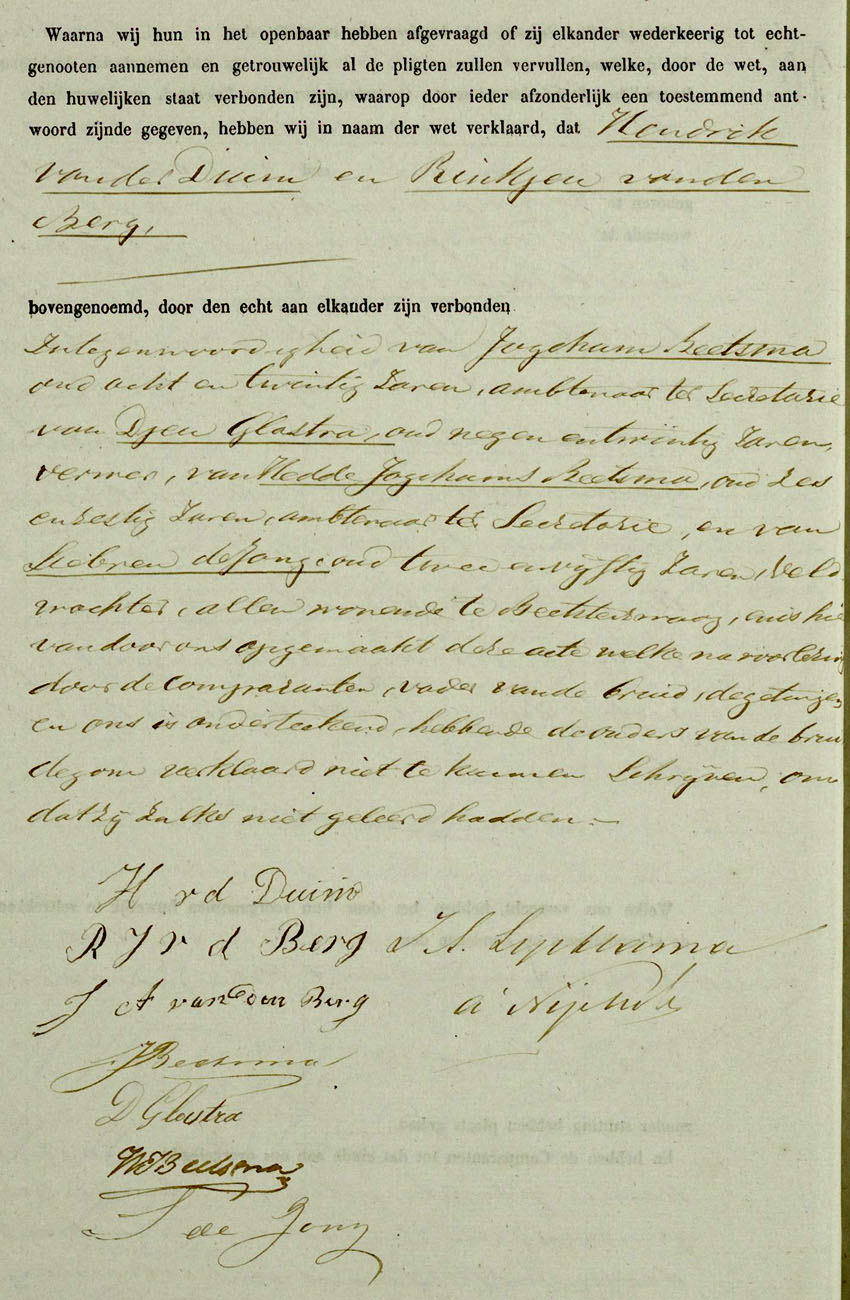 Waarna wij hun in het openbaar hebben afgevraagd of zij elkander wederkeerig tot echt-
genooten aannemen en getrouwelijk al de pligten zullen vervullen, welke, door de wet, aan
den huwelijken staat verbonden zijn, waarop door ieder afzonderlijk een toestemmend ant-
woord zijnde gegeven, hebben wij in naam der wet verklaard, dat Hendrik
van der Duim en Rinkjen van den
Berg,
bovengenoemd, door den echt aan elkander zijn verbonden
In tegenwoordigheid van Jogchum Beetsma
oud acht en twintig Jaren, ambtenaar ter Secretarie
van Djen Glastra, oud negen en twintig Jaren,
verwer, van Hedde Jogchums Beetsma, oud zes
en zestig Jaren, ambtenaar ter Secretarie, en van
Siebren de Jong, oud twee en vijftig Jaren, veld
wachter, allen wonende te Beetsterzwaag, en is hier
van door ons opgemaakt deze acte welke na voorlezing
door de comparanten, vader van de bruid, de getuigen
en ons is onderteekend, hebbende de ouders van de brui
degom verklaard niet te kunnen Schrijven, om
dat zij zulks niet geleerd hadden.—
H v d Duim
R J v d Berg J. S. Lyklema
J A van den Berg a Nijholt
JBeetsma
D Glastra
HJBeetsma
S de Jong